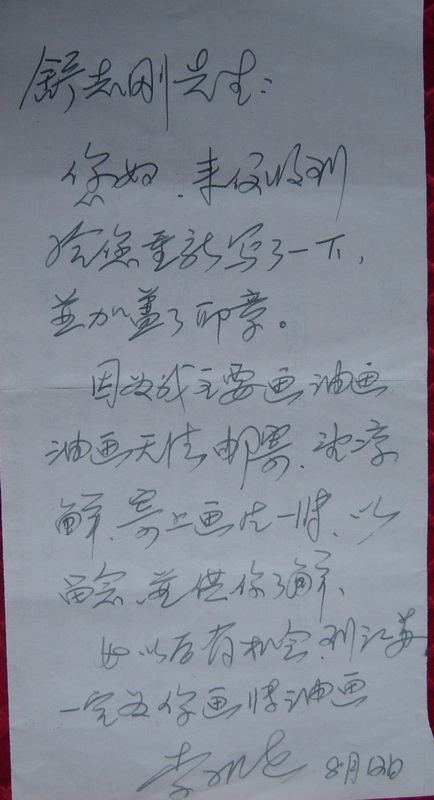 舒志刚先生：
您好、来信收到
给您重新写了一下，
并加盖了印章。
因为我主要画油画
油画无法邮寄、望谅
解、寄上画片一张、以
留念、并供你了解、
如以后有机会到江苏
一定为你画张油画
李 8月12日